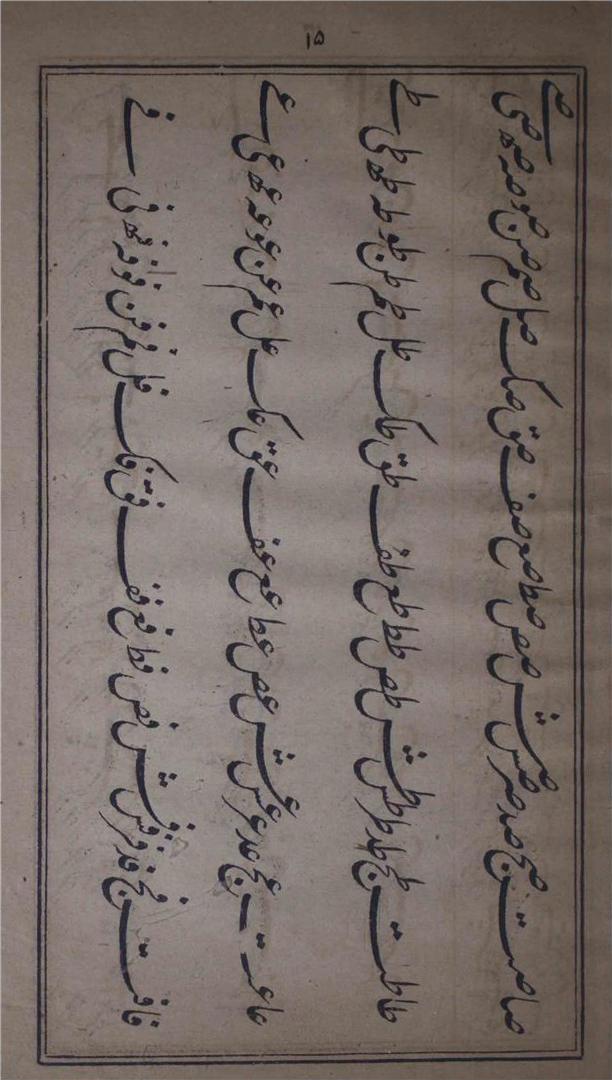 ۱۵
صا صت صج صد صر صس صش صص صط صع صف صق صک صل صم صن صو صه صھ صی صے
طا طت طج طد طر طس طش طص طط طع طف طق طک طل طم طن طو طه طھ طی طے
عا عت عج عد عر عس عش عص عط عع عف عق عک عل عم عن عو عه عھ عی عے
فا فت فج فد فر فس فش فص فط فع فف فق فک فل فم فن فو فه فھ فی فے